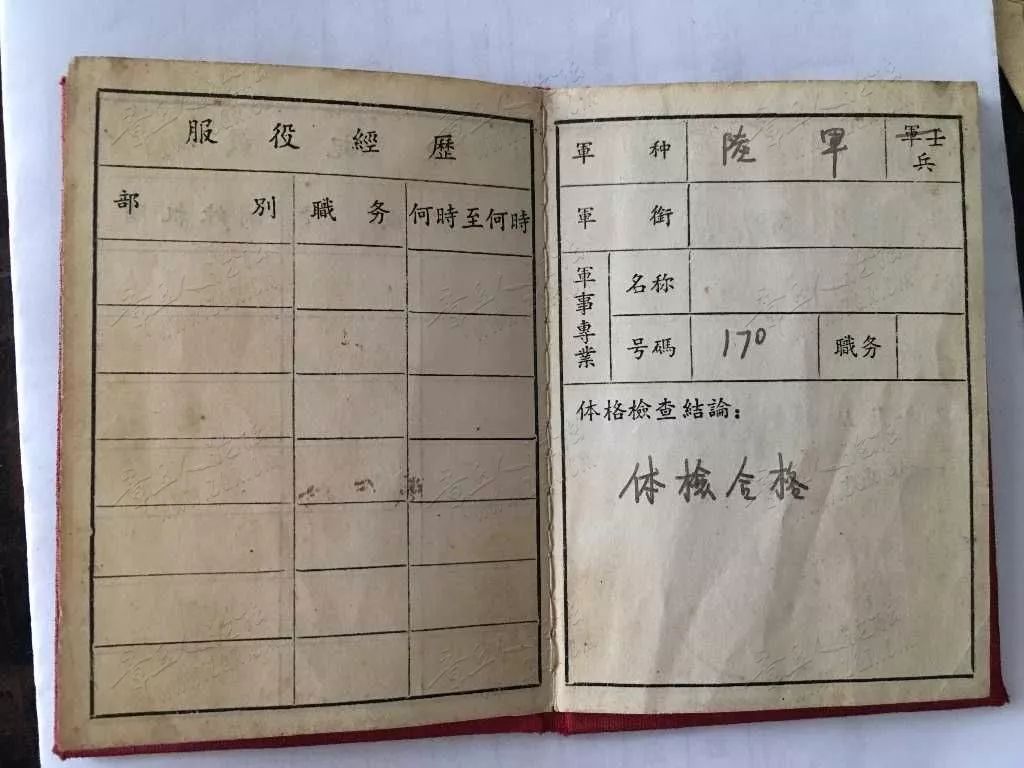 服役經歷
部別 職务 何時至何時
軍种 陸軍 軍士
兵
軍銜
軍事專業 名称
号碼 170 職务
体格檢查結論：
体檢合格